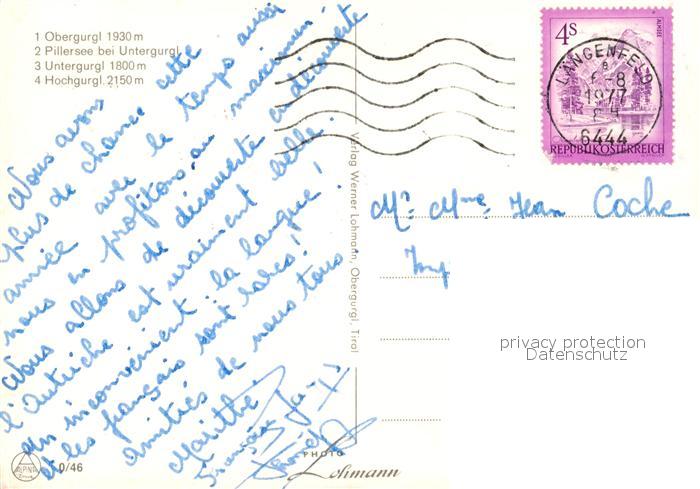 1 Obergurgl 1930 m
2 Pillersee bei Untergurgl
3 Untergurgl 1800 m
4 Hochgurgl 2150 m
Nous avons cette
plus de chance aussi
année avec le temps
nous en profitons au maximum!
Nous allons de découverte en découverte
l'Autriche est vraiment belle.
un inconvénient: la langue!
et les français sont rares!
amitiés de nous tous.
Maïthé
François
Verlag Werner Lohmann, Obergurgl, Tirol
ALPINA
0/46
PHOTO
Lohmann
4S
ALMSEE
LÄNGENFELD
1977
6444
REPUBLIK ÖSTERREICH
Mr. Mme. Jean Coche
privacy protection
Datenschutz